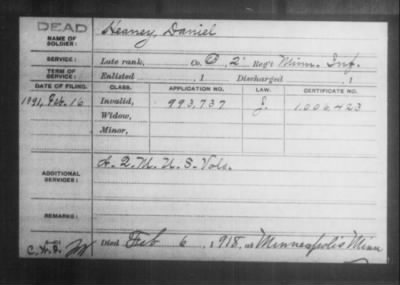 DEAD
NAME OF SOLDIER: Heaney, Daniel
SERVICE: Late rank, Co. C, 2" Reg't Minn. Inf.
TERM OF SERVICE: Enlisted , 1 Discharged , 1
DATE OF FILING. CLASS. APPLICATION NO. LAW. CERTIFICATE NO.
1891, Feb. 16 Invalid, 993,737 J. 1.006,423
Widow,
Minor,
ADDITIONAL SERVICES: A. Q. M. U. S. Vols.
REMARKS:
Died Feb 6, 1918, at Minneapolis Minn